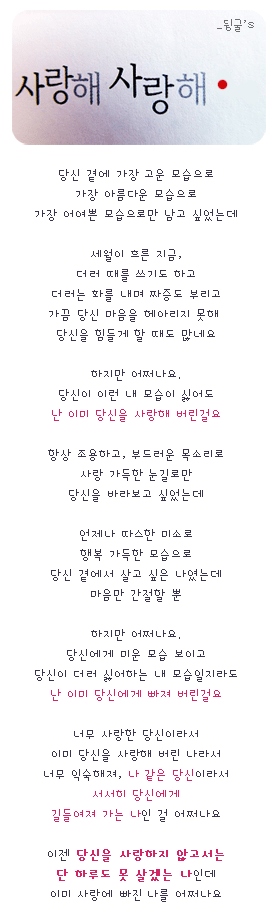 _뒹굴's
사랑해 사랑해
당신 곁에 가장 고운 모습으로
가장 아름다운 모습으로
가장 어여쁜 모습으로만 남고 싶었는데
세월이 흐른 지금,
더러 떼를 쓰기도 하고
더러는 화를 내며 짜증도 부리고
가끔 당신 마음을 헤아리지 못해
당신을 힘들게 할 때도 많네요
하지만 어쩌나요.
당신이 이런 내 모습이 싫어도
난 이미 당신을 사랑해 버린걸요
항상 조용하고, 부드러운 목소리로
사랑 가득한 눈길로만
당신을 바라보고 싶었는데
언제나 따스한 미소로
행복 가득한 모습으로
당신 곁에서 살고 싶은 나였는데
마음만 간절할 뿐
하지만 어쩌나요.
당신에게 미운 모습 보이고
당신이 더러 싫어하는 내 모습일지라도
난 이미 당신에게 빠져 버린걸요
너무 사랑한 당신이라서
이미 당신을 사랑해 버린 나라서
너무 익숙해져, 나 같은 당신이라서
서서히 당신에게
길들여져 가는 나인 걸 어쩌나요
이젠 당신을 사랑하지 않고서는
단 하루도 못 살겠는 나인데
이미 사랑에 빠진 나를 어쩌나요